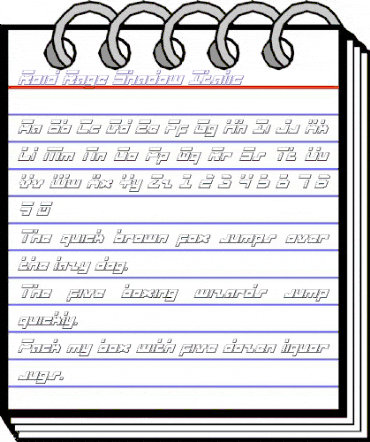 Roid Rage Shadow Italic
Aa Bb Cc Dd Ee Ff Gg Hh Ii Jj Kk
Ll Mm Nn Oo Pp Qq Rr Ss Tt Uu
Vv Ww Xx Yy Zz 1 2 3 4 5 6 7 8
9 0
The quick brown fox jumps over
the lazy dog.
The five boxing wizards jump
quickly.
Pack my box with five dozen liquor
jugs.